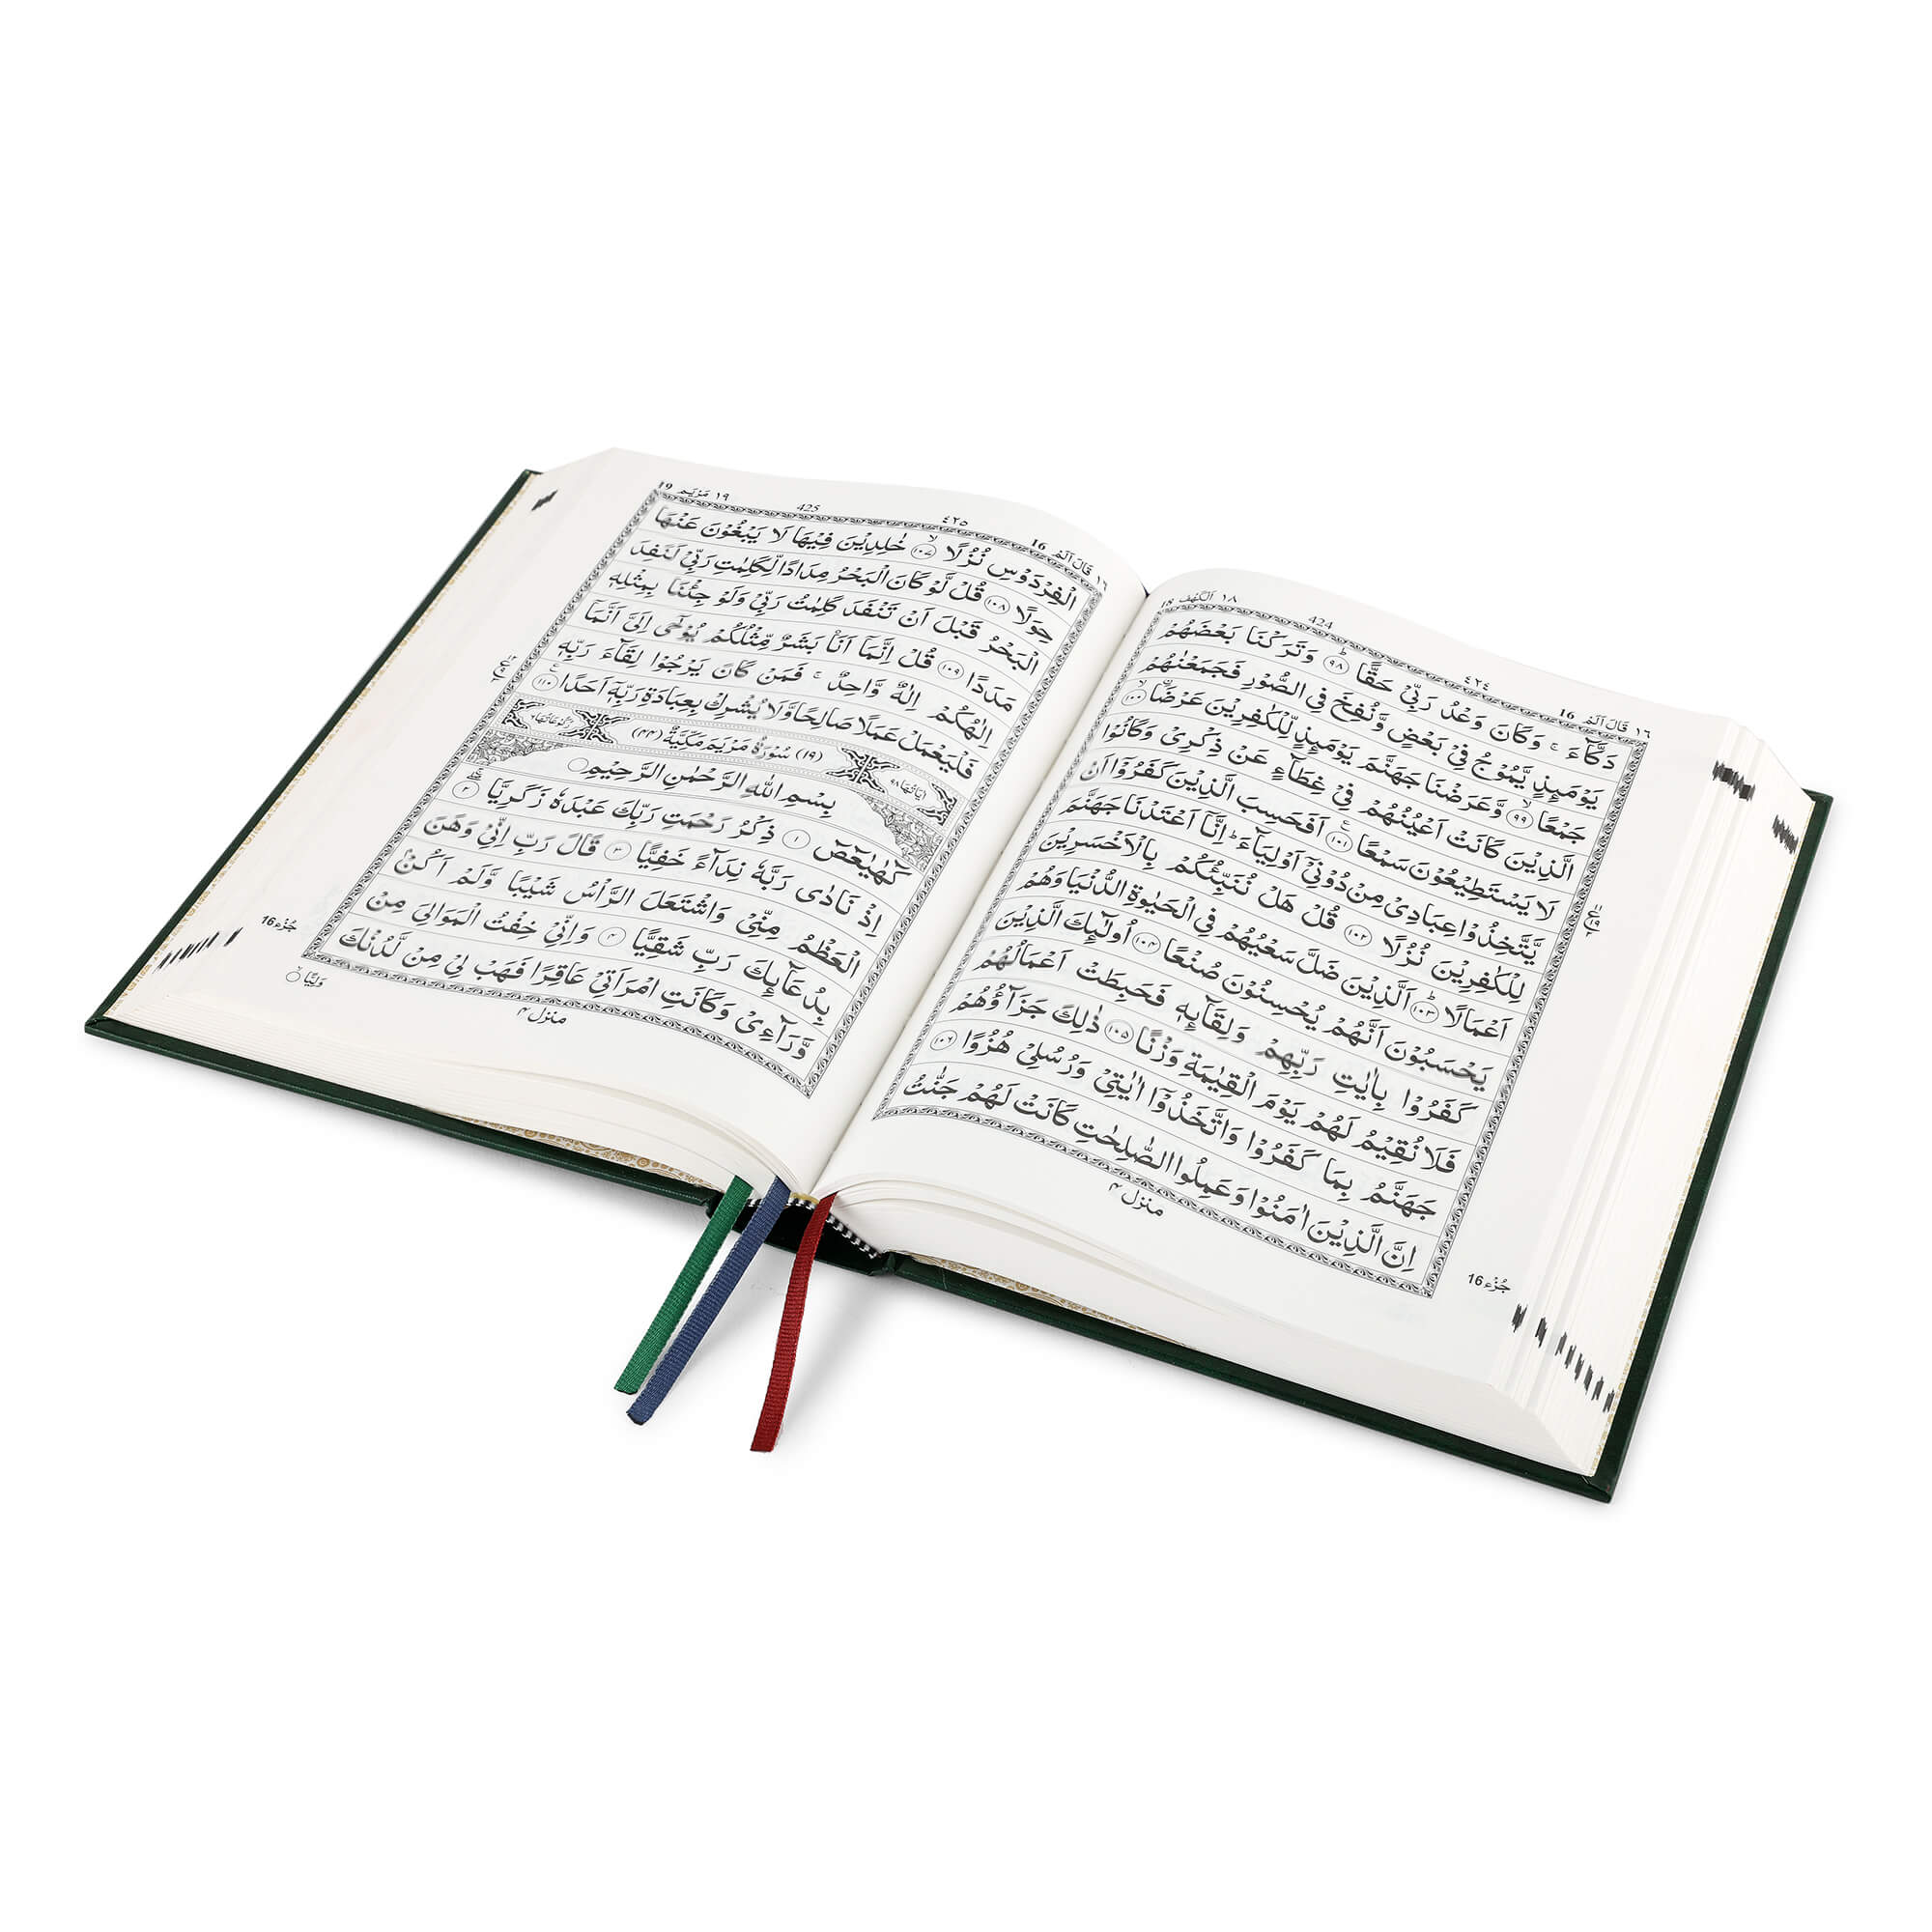 ١٦ قَالَ اَلَمْ 16
٤٢٤
424
١٨ اَلْكَهْف 18
دَكَّآءَ ۚ وَكَانَ وَعْدُ رَبِّیْ حَقًّا ؕ ﴿۹۸﴾ وَتَرَكْنَا بَعْضَهُمْ
يَوْمَئِذٍ يَّمُوْجُ فِیْ بَعْضٍ وَّنُفِخَ فِی الصُّوْرِ فَجَمَعْنٰهُمْ
جَمْعًا ۙ ﴿۹۹﴾ وَّعَرَضْنَا جَهَنَّمَ يَوْمَئِذٍ لِّلْكٰفِرِيْنَ عَرْضَا ۙ ﴿۱۰۰﴾
الَّذِيْنَ كَانَتْ اَعْيُنُهُمْ فِیْ غِطَآءٍ عَنْ ذِكْرِیْ وَكَانُوْا
لَا يَسْتَطِيْعُوْنَ سَمْعًا ۧ ﴿۱۰۱﴾ اَفَحَسِبَ الَّذِيْنَ كَفَرُوْۤا اَنْ
يَّتَّخِذُوْا عِبَادِیْ مِنْ دُوْنِیْۤ اَوْلِيَآءَ ؕ اِنَّاۤ اَعْتَدْنَا جَهَنَّمَ
لِلْكٰفِرِيْنَ نُزُلًا ﴿۱۰۲﴾ قُلْ هَلْ نُنَبِّئُكُمْ بِالْاَخْسَرِيْنَ
اَعْمَالًا ؕ ﴿۱۰۳﴾ اَلَّذِيْنَ ضَلَّ سَعْيُهُمْ فِی الْحَيٰوةِ الدُّنْيَا وَهُمْ
يَحْسَبُوْنَ اَنَّهُمْ يُحْسِنُوْنَ صُنْعًا ﴿۱۰۴﴾ اُولٰٓئِكَ الَّذِيْنَ
كَفَرُوْا بِاٰيٰتِ رَبِّهِمْ وَلِقَآئِهٖ فَحَبِطَتْ اَعْمَالُهُمْ
فَلَا نُقِيْمُ لَهُمْ يَوْمَ الْقِيٰمَةِ وَزْنًا ﴿۱۰۵﴾ ذٰلِكَ جَزَآؤُهُمْ
جَهَنَّمُ بِمَا كَفَرُوْا وَاتَّخَذُوْۤا اٰيٰتِیْ وَرُسُلِیْ هُزُوًا ﴿۱۰۶﴾
اِنَّ الَّذِيْنَ اٰمَنُوْا وَعَمِلُوا الصّٰلِحٰتِ كَانَتْ لَهُمْ جَنّٰتُ
منزل ۴
جُزْء 16
١٦ قَالَ اَلَمْ 16
٤٢٥
425
١٩ مَرْيَم 19
الْفِرْدَوْسِ نُزُلًا ۙ ﴿۱۰۷﴾ خٰلِدِيْنَ فِيْهَا لَا يَبْغُوْنَ عَنْهَا
حِوَلًا ﴿۱۰۸﴾ قُلْ لَّوْ كَانَ الْبَحْرُ مِدَادًا لِّكَلِمٰتِ رَبِّیْ لَنَفِدَ
الْبَحْرُ قَبْلَ اَنْ تَنْفَدَ كَلِمٰتُ رَبِّیْ وَلَوْ جِئْنَا بِمِثْلِهٖ
مَدَدًا ﴿۱۰۹﴾ قُلْ اِنَّمَاۤ اَنَا بَشَرٌ مِّثْلُكُمْ يُوْحٰۤی اِلَیَّ اَنَّمَاۤ
اِلٰهُكُمْ اِلٰهٌ وَّاحِدٌ ۚ فَمَنْ كَانَ يَرْجُوْا لِقَآءَ رَبِّهٖ
فَلْيَعْمَلْ عَمَلًا صَالِحًا وَّلَا يُشْرِكْ بِعِبَادَةِ رَبِّهٖۤ اَحَدًا ﴿۱۱۰﴾
اٰيَاتُهَا ۹۸
(۱۹) سُوْرَةُ مَرْيَمَ مَكِّيَّةٌ (۴۴)
بِسْمِ اللهِ الرَّحْمٰنِ الرَّحِيْمِ
كٓهٰيٰعٓصٓ ﴿۱﴾ ذِكْرُ رَحْمَتِ رَبِّكَ عَبْدَهٗ زَكَرِيَّا ﴿۲﴾
اِذْ نَادٰی رَبَّهٗ نِدَآءً خَفِيًّا ﴿۳﴾ قَالَ رَبِّ اِنِّیْ وَهَنَ
الْعَظْمُ مِنِّیْ وَاشْتَعَلَ الرَّاْسُ شَيْبًا وَّلَمْ اَكُنْۢ
بِدُعَآئِكَ رَبِّ شَقِيًّا ﴿۴﴾ وَاِنِّیْ خِفْتُ الْمَوَالِیَ مِنْ
وَّرَآءِیْ وَكَانَتِ امْرَاَتِیْ عَاقِرًا فَهَبْ لِیْ مِنْ لَّدُنْكَ
وَلِيًّا
منزل ۴
جُزْء 16